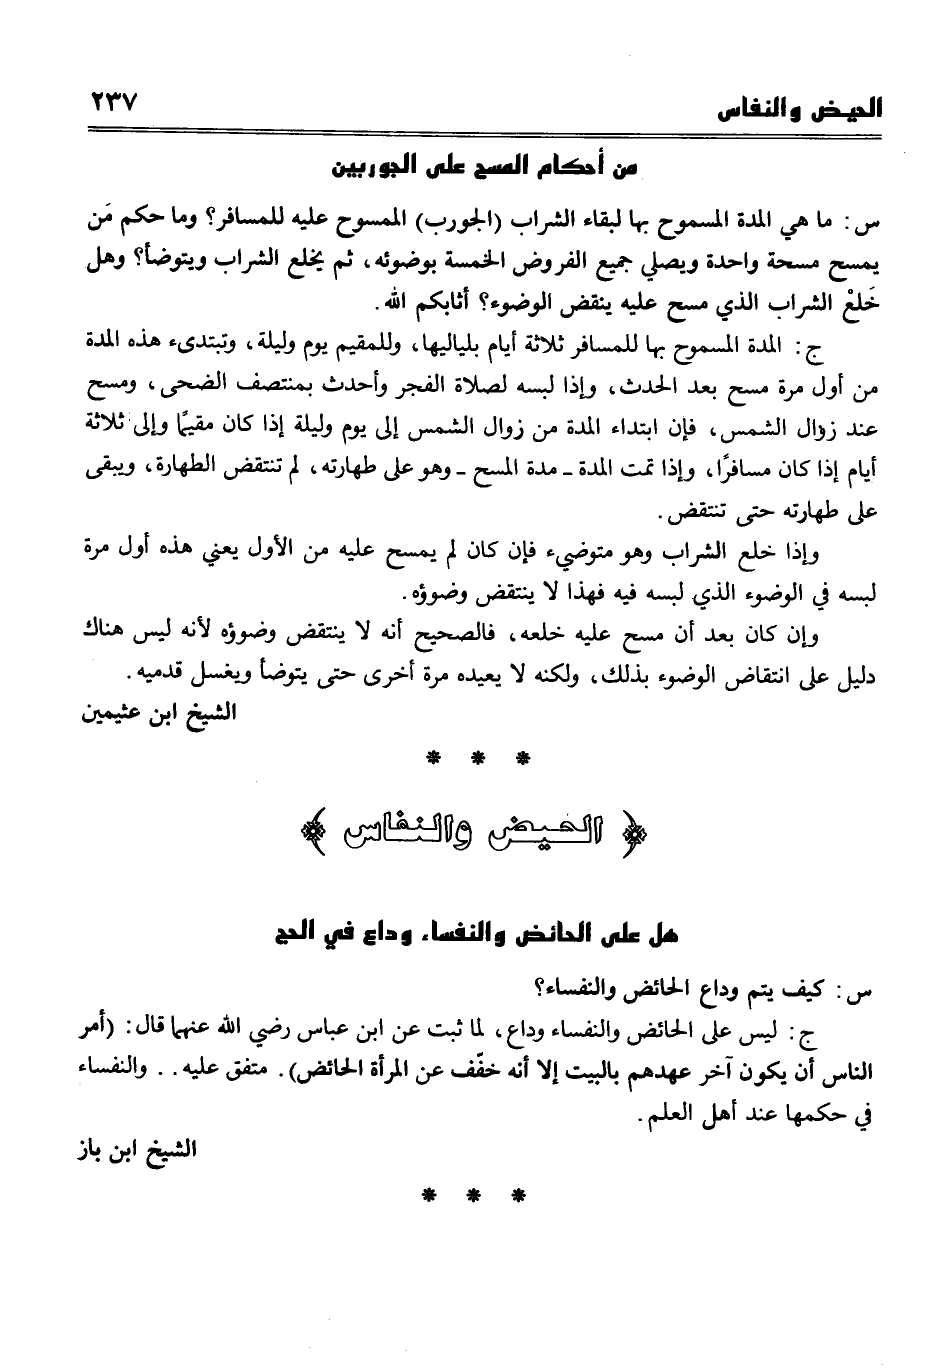 الحيض والنفاس
٢٣٧
من أحكام المسح على الجوربين
س: ما هي المدة المسموح بها لبقاء الشراب (الجورب) الممسوح عليه للمسافر؟ وما حكم مَن
يمسح مسحة واحدة ويصلي جميع الفروض الخمسة بوضوئه، ثم يخلع الشراب ويتوضأ؟ وهل
خَلعْ الشراب الذي مسح عليه ينقض الوضوء؟ أثابكم الله.
ج: المدة المسموح بها للمسافر ثلاثة أيام بلياليها، وللمقيم يوم وليلة، وتبتدىء هذه المدة
من أول مرة مسح بعد الحدث، وإذا لبسه لصلاة الفجر وأحدث بمنتصف الضحى، ومسح
عند زوال الشمس، فإن ابتداء المدة من زوال الشمس إلى يوم وليلة إذا كان مقيمًا وإلى ثلاثة
أيام إذا كان مسافرًا، وإذا تمت المدة ـ مدة المسح ـ وهو على طهارته، لم تنتقض الطهارة، ويبقى
على طهارته حتى تنتقض.
وإذا خلع الشراب وهو متوضيء فإن كان لم يمسح عليه من الأول يعني هذه أول مرة
لبسه في الوضوء الذي لبسه فيه فهذا لا ينتقض وضوؤه.
وإن كان بعد أن مسح عليه خلعه، فالصحيح أنه لا ينتقض وضوؤه لأنه ليس هناك
دليل على انتقاض الوضوء بذلك، ولكنه لا يعيده مرة أخرى حتى يتوضأ ويغسل قدميه.
الشيخ ابن عثيمين
* * *
﴿ الحيض والنفاس ﴾
هل على الحائض والنفساء وداع في الحج
س: كيف يتم وداع الحائض والنفساء؟
ج: ليس على الحائض والنفساء وداع، لما ثبت عن ابن عباس رضي الله عنهما قال: (أمر
الناس أن يكون آخر عهدهم بالبيت إلا أنه خفّف عن المرأة الحائض). متفق عليه.. والنفساء
في حكمها عند أهل العلم.
الشيخ ابن باز
* * *